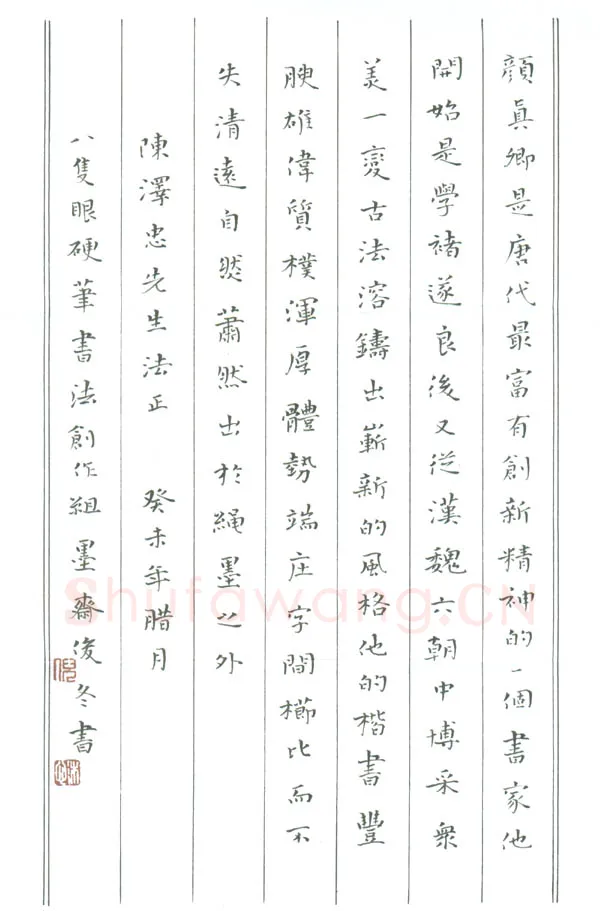 顔真卿是唐代最富有創新精神的一個書家他
開始是學褚遂良後又從漢魏六朝中博采衆
美一變古法溶鑄出嶄新的風格他的楷書豐
腴雄偉質樸渾厚體勢端庄字間櫛比而不
失清遠自然蕭然出於繩墨之外
陳澤忠先生法正 癸未年腊月
八隻眼硬筆書法創作組墨齋俊冬書
Shufawang.CN